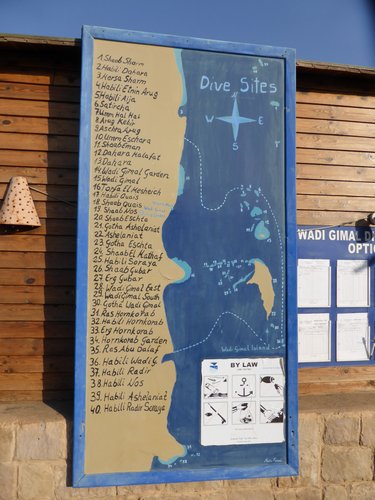 1 Shaab Sharm
2 Habili Dahara
3 Horsa Sharm
4 Habili Etnin Arug
5 Habili Aija
6 Satircha
7 Umm Hal Hal
8 Arug Kebir
9 Aschra Arug
10 Umm Eschara
11 Shaab Eman
12 Dahara Halafat
13 Dahara
14 Wadi Gimal Garden
15 Wadi Gimal
16 Torfa El Hesherich
17 Habili Quais
18 Shaab Quais
19 Shaab Nos
20 Shaab Eschta
21 Gotha Ashelaniat
22 Ashelaniat
23 Gotha Eschta
24 Shaab El Kathaf
25 Habili Soraya
26 Shaab Gubar
27 Erg Gubar
28 Wadi Gimal East
29 Wadi Gimal South
30 Gotha Wadi Gimal
31 Ras Hornkorab
32 Habili Hornkorab
33 Erg Hornkorab
34 Hornkorab Garden
35 Ras Abu Dalaf
36 Habili Wadi G
37 Habili Radir
38 Habili Nos
39 Habili Ashelaniat
40 Habili Radir Soraya
Dive Sites
N
W E
S
Wadi Gimal Island
BY LAW
WADI GIMAL D
OPTIO